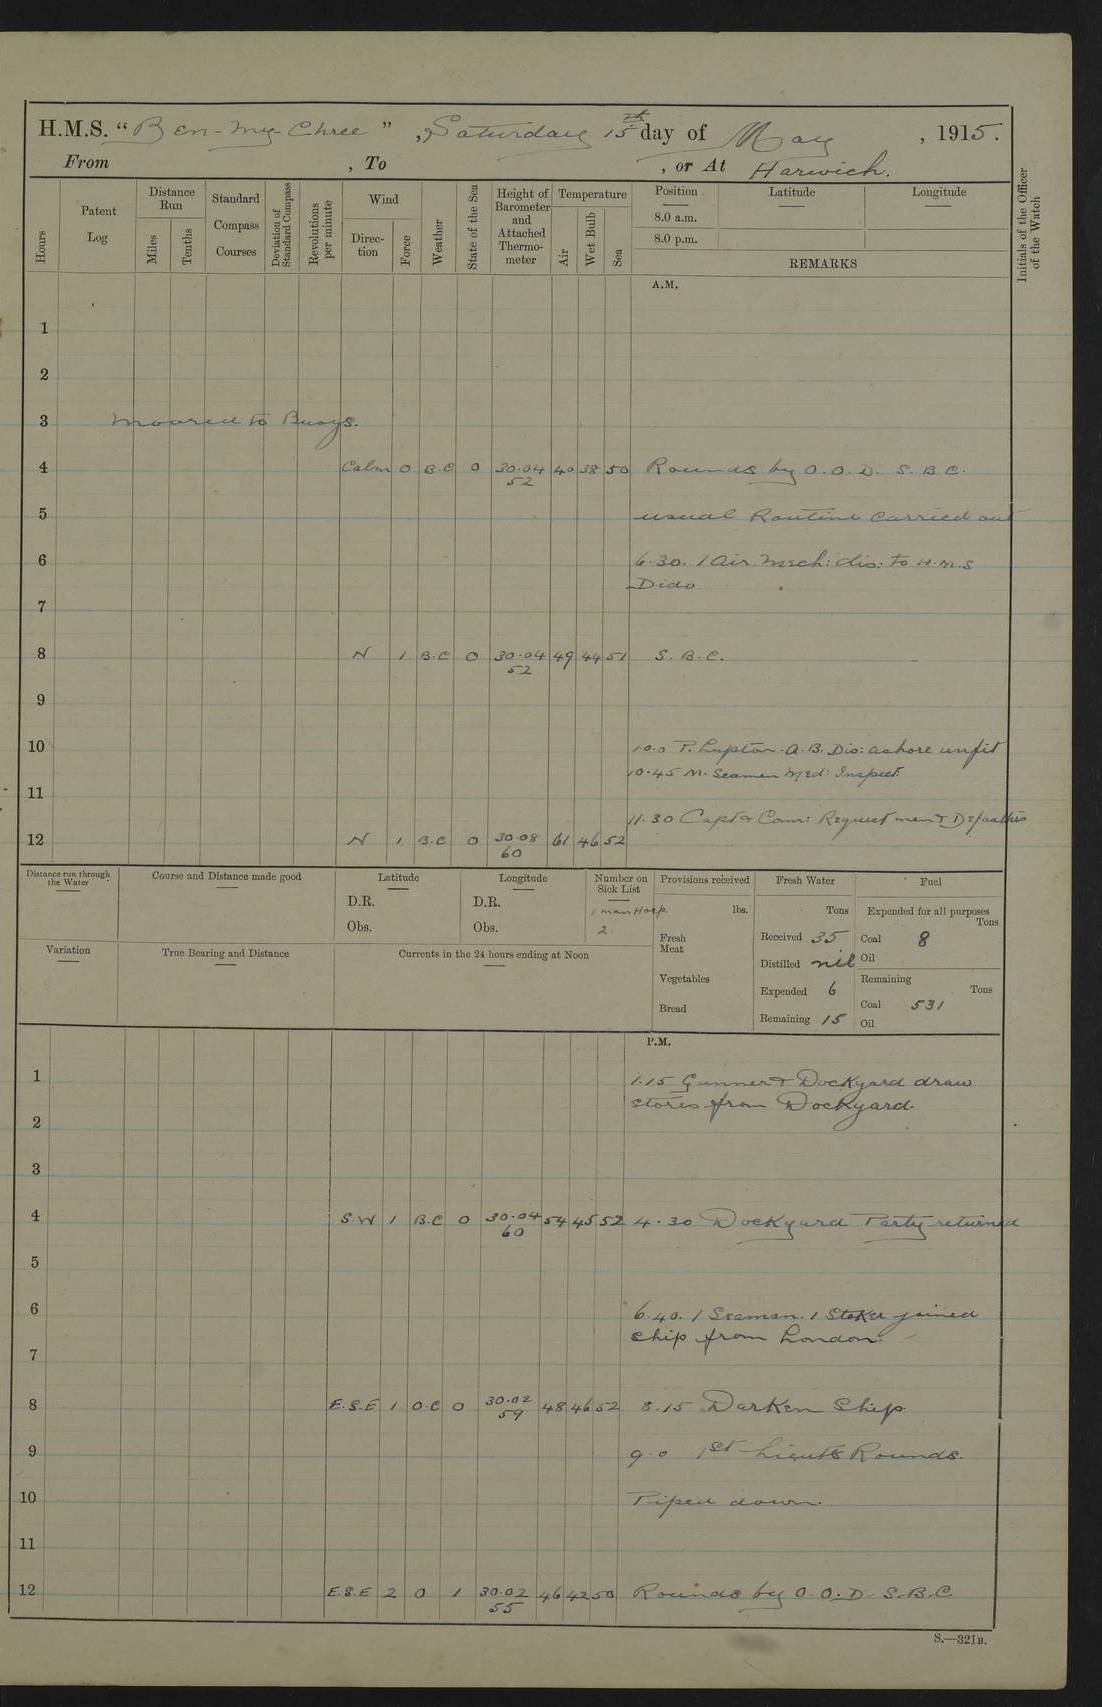 H.M.S. "Ben-my-Chree", Saturday 15th day of May, 1915.
From , To , or At Harwich.
Hours
Patent Log
Distance Run
Miles
Tenths
Standard Compass Courses
Deviation of Standard Compass
Revolutions per minute
Wind
Direction
Force
Weather
State of the Sea
Height of Barometer and Attached Thermometer
Temperature
Air
Wet Bulb
Sea
Position Latitude Longitude
8.0 a.m.
8.0 p.m.
REMARKS
Initials of the Officer of the Watch
A.M.
1
2
3 Moored to Buoys.
4 Calm 0 B.C 0 30.04 52 40 38 50 Rounds by O.O.D. S.B.C.
5 usual Routine carried out
6 6.30. 1 Air. Mech: dis: to H.M.S
Dido.
7
8 N 1 B.C 0 30.04 52 49 44 51 S.B.C.
9
10 10.0 P. Lupton. A.B. Dis: ashore unfit
10.45 M. Seamen Med: Inspect.
11
11.30 Capt & Com: Request men & Defaulters
12 N 1 B.C 0 30.08 60 61 46 52
Distance run through the Water
Course and Distance made good
Latitude
D.R.
Obs.
Longitude
D.R.
Obs.
Number on Sick List
1 man Hosp.
2.
Provisions received
lbs.
Fresh Meat
Vegetables
Bread
Fresh Water
Tons
Received 35
Distilled nil
Expended 6
Remaining 15
Fuel
Expended for all purposes
Tons
Coal 8
Oil
Remaining
Tons
Coal 531
Oil
Variation
True Bearing and Distance
Currents in the 24 hours ending at Noon
P.M.
1 1.15 Gunner & Dockyard draw
stores from Dockyard.
2
3
4 S.W 1 B.C 0 30.04 60 54 45 52 4.30 Dockyard Party returned
5
6 6.40. 1 Seaman. 1 Stoker joined
ship from London.
7
8 E.S.E 1 O.C 0 30.02 59 48 46 52 8.15 Darken Ship.
9 9.0 1st Lieuts Rounds.
10 Piped down.
11
12 E.S.E 2 0 1 30.02 55 46 42 50 Rounds by O.O.D S.B.C
S.—321B.